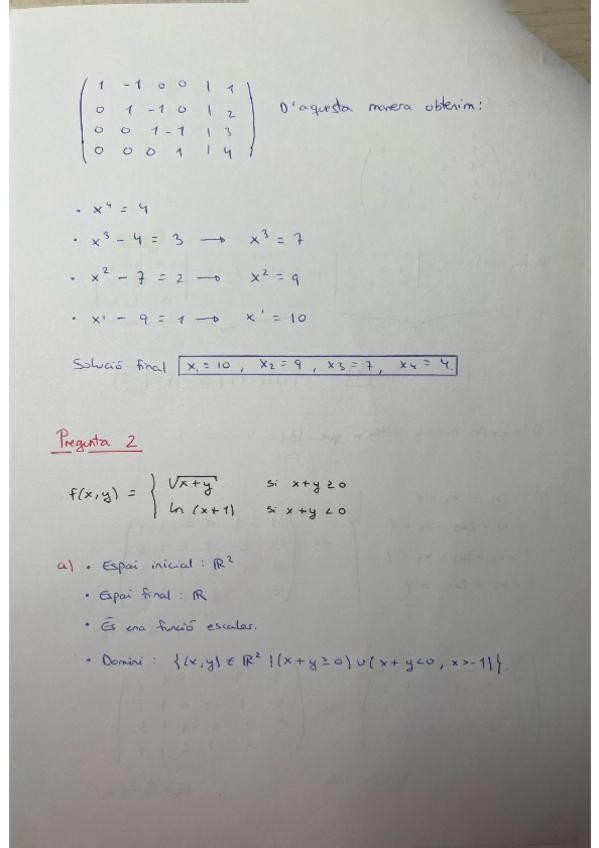 1 -1 0 0 | 1
0 1 -1 0 | 2
0 0 1 -1 | 3
0 0 0 1 | 4
D'aquesta manera obtenim:
· x⁴ = 4
· x³ - 4 = 3 → x³ = 7
· x² - 7 = 2 → x² = 9
· x' - 9 = 1 → x' = 10
Solució final x₁ = 10 , x₂ = 9 , x3 = 7 , x4 = 4.
Pregunta 2
f(x,y) = { √x+y si x+y ≥ 0
ln (x+1) si x+y < 0
a) · Espai inicial : ℝ²
· Espai final : ℝ
· És una funció escalar.
· Domini : {(x,y) ∈ ℝ² | (x+y ≥ 0) ∪ (x+y<0 , x>-1)}.